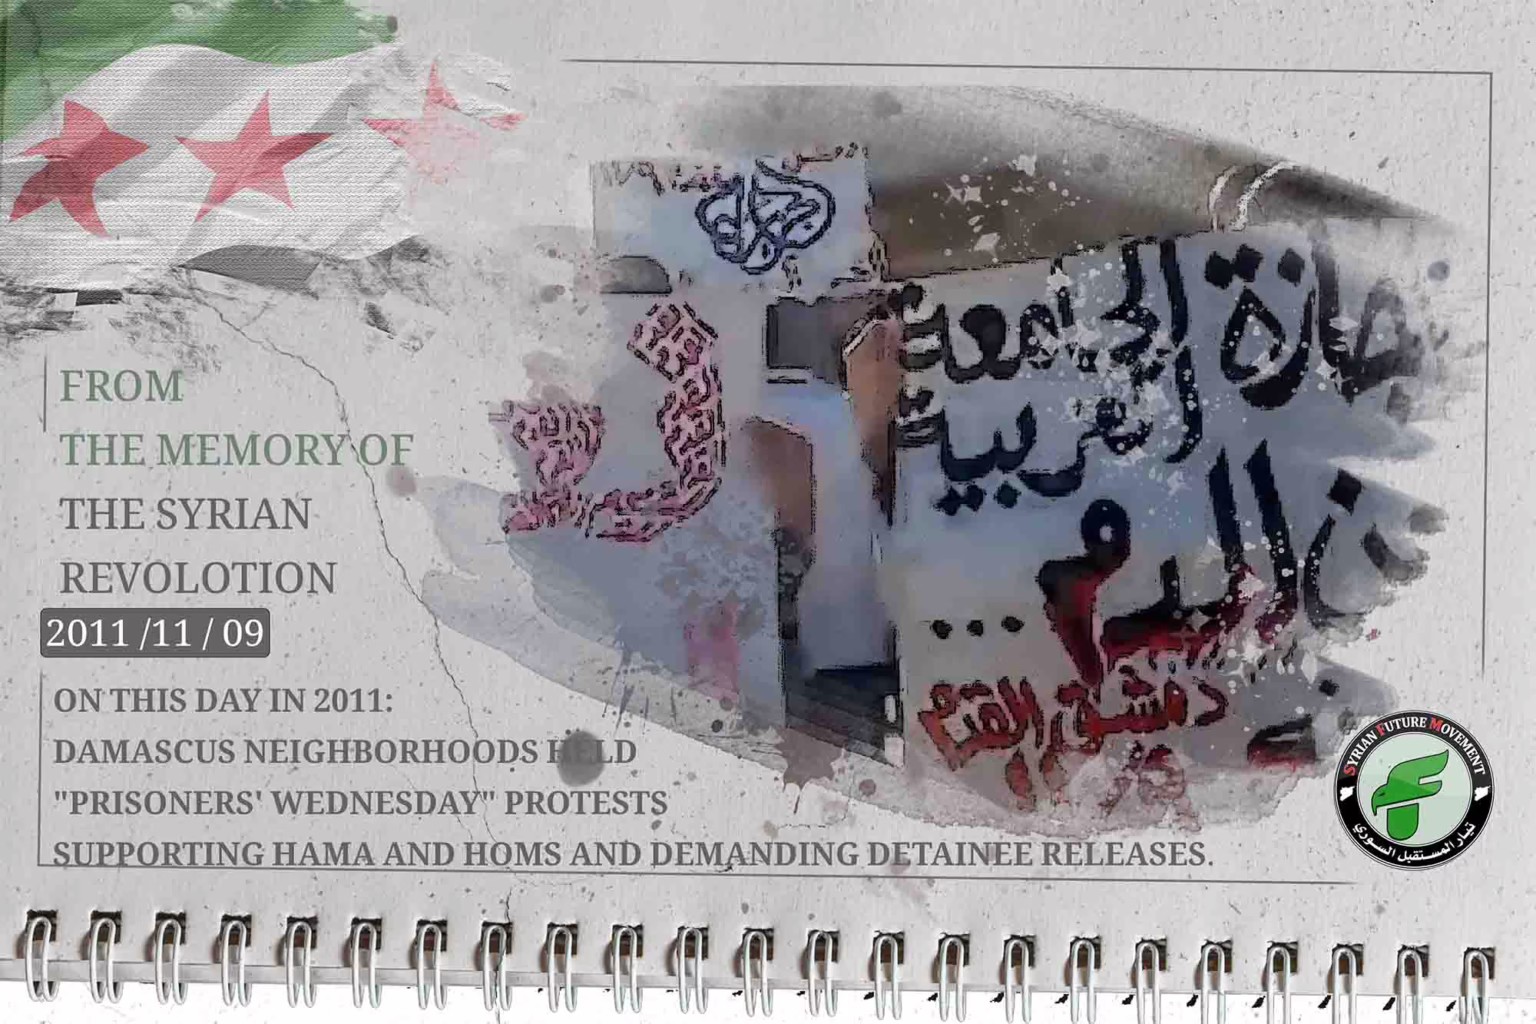 FROM
THE MEMORY OF
THE SYRIAN
REVOLOTION
2011 /11 / 09
ON THIS DAY IN 2011:
DAMASCUS NEIGHBORHOODS HELD
"PRISONERS' WEDNESDAY" PROTESTS
SUPPORTING HAMA AND HOMS AND DEMANDING DETAINEE RELEASES.
الجامعة
العربية
الدم
...
دمشق القدم
SYRIAN FUTURE MOVEMENT
تيار المستقبل السوري